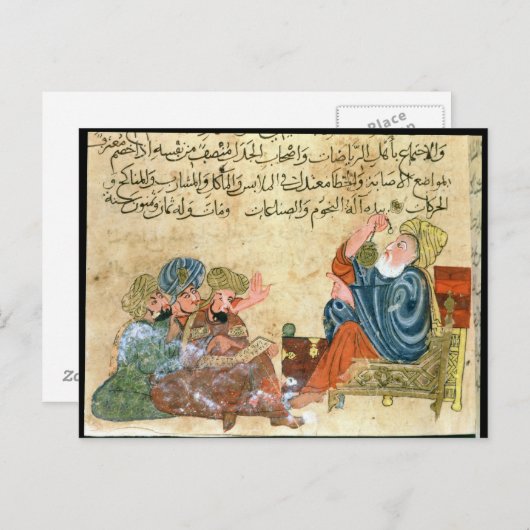 والاجتماع باهل الرياضات واصحاب الجدل منتصف من نفسه اذا خصم معترف
المواضع الاصابة والخطا معتدل في الملابس والماكل والمشارب والمناكح و
الحركات بيده آلة النجوم والصناعات ومات وله ثمان وستون سنة
Place
Zo